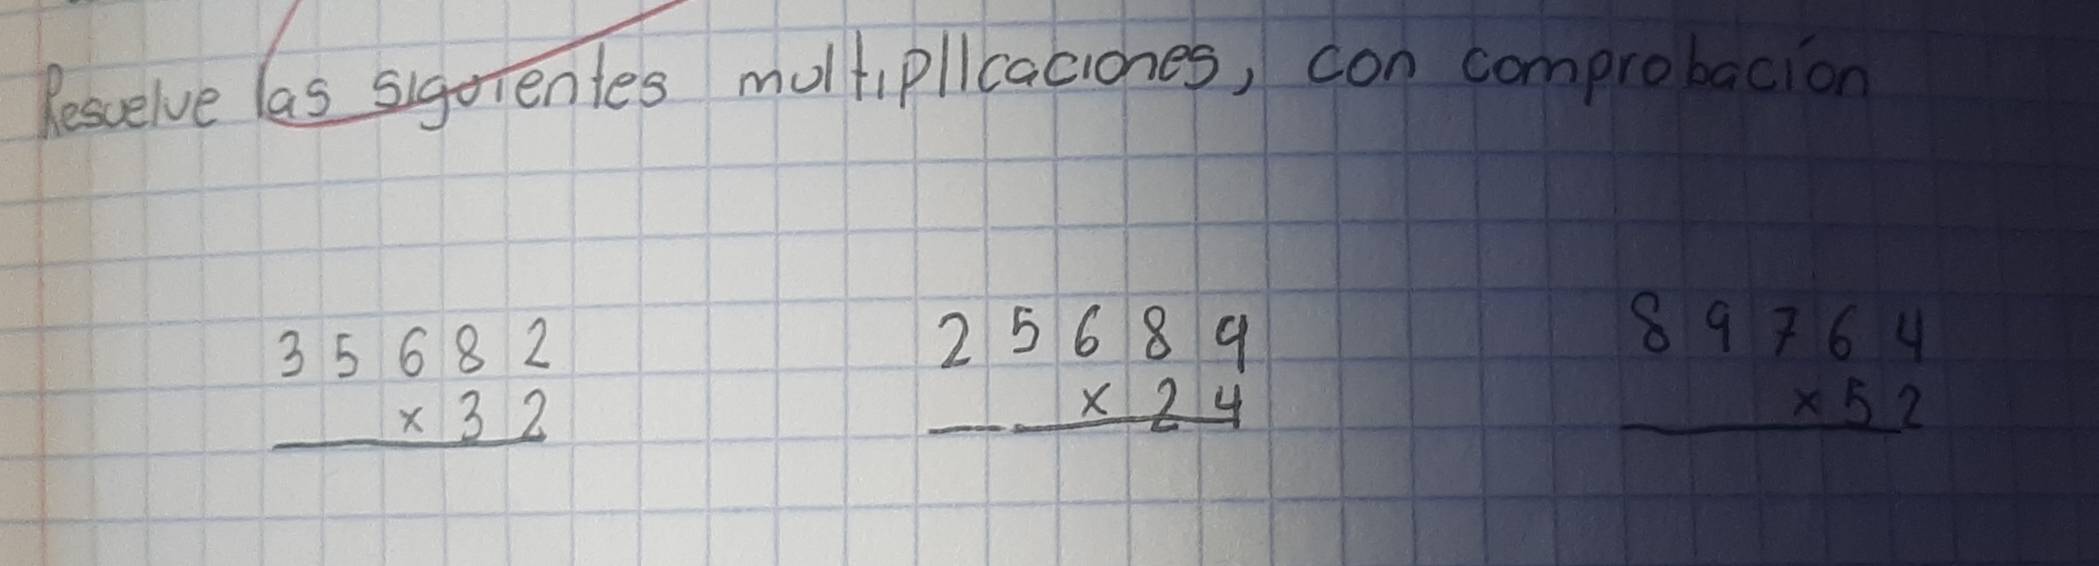 Resuelve las siguientes multiplicaciones, con comprobación
35682 25689 89764
x32 x24 x52